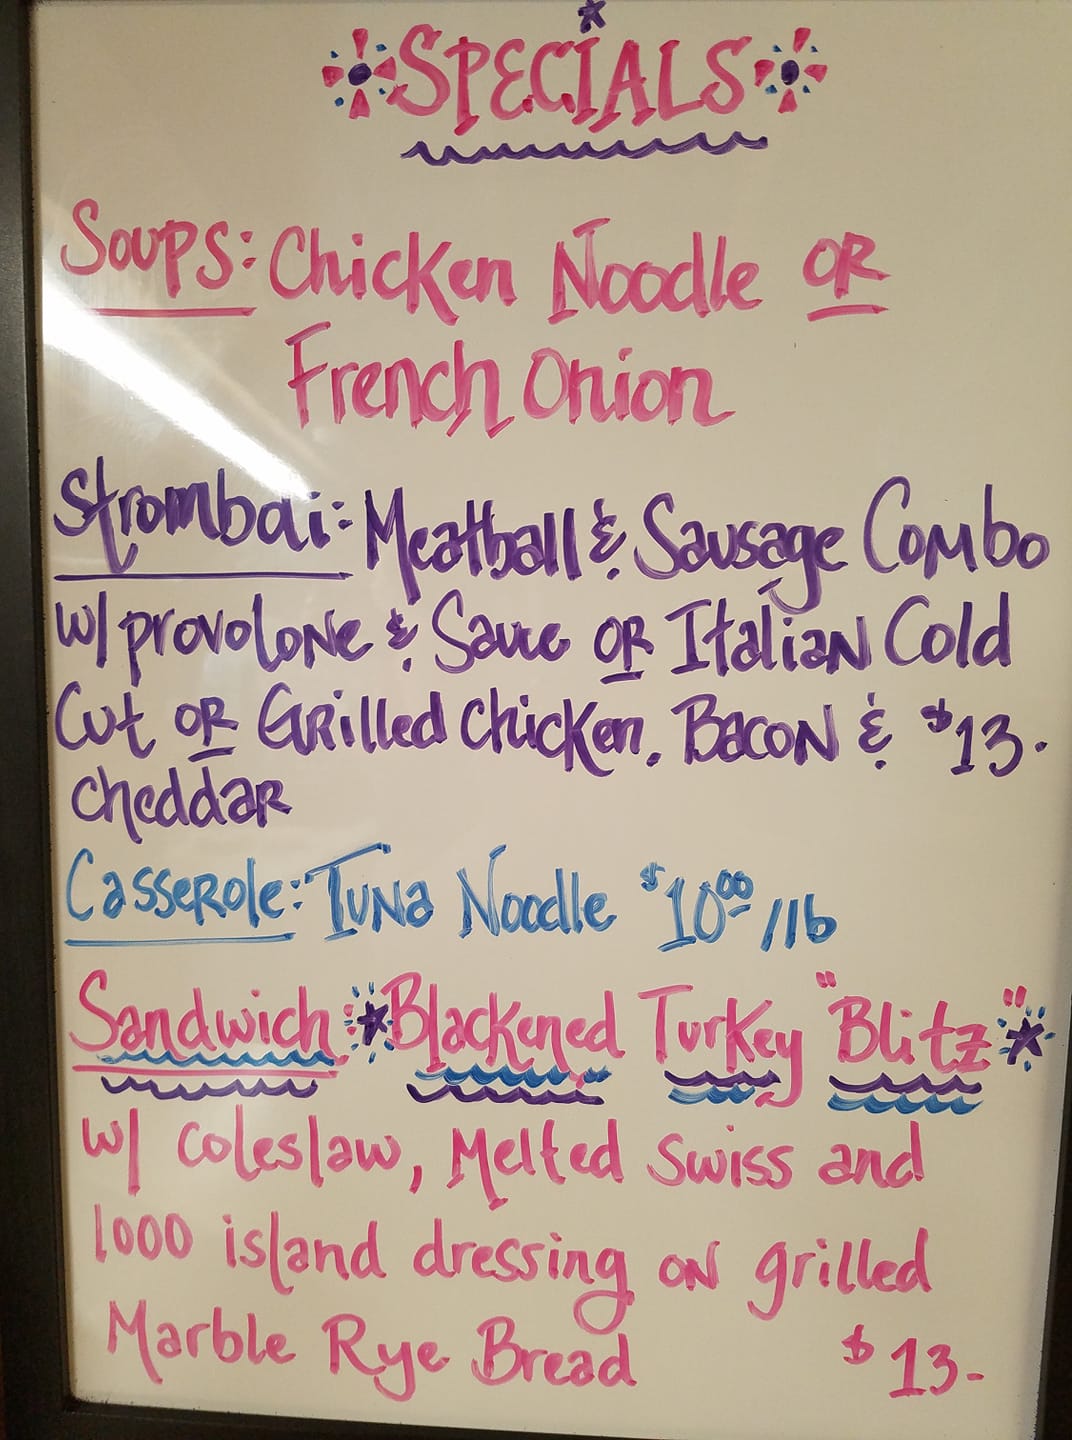 SPECIALS
Soups: Chicken Noodle OR
French Onion
Stromboli: Meatball & Sausage Combo
w/ provolone & Sauce OR Italian Cold
Cut OR Grilled Chicken, Bacon & $13.
cheddar
Casserole: Tuna Noodle $10.00/lb
Sandwich: Blackened Turkey "Blitz"
w/ coleslaw, Melted Swiss and
1000 island dressing on grilled
Marble Rye Bread $13-